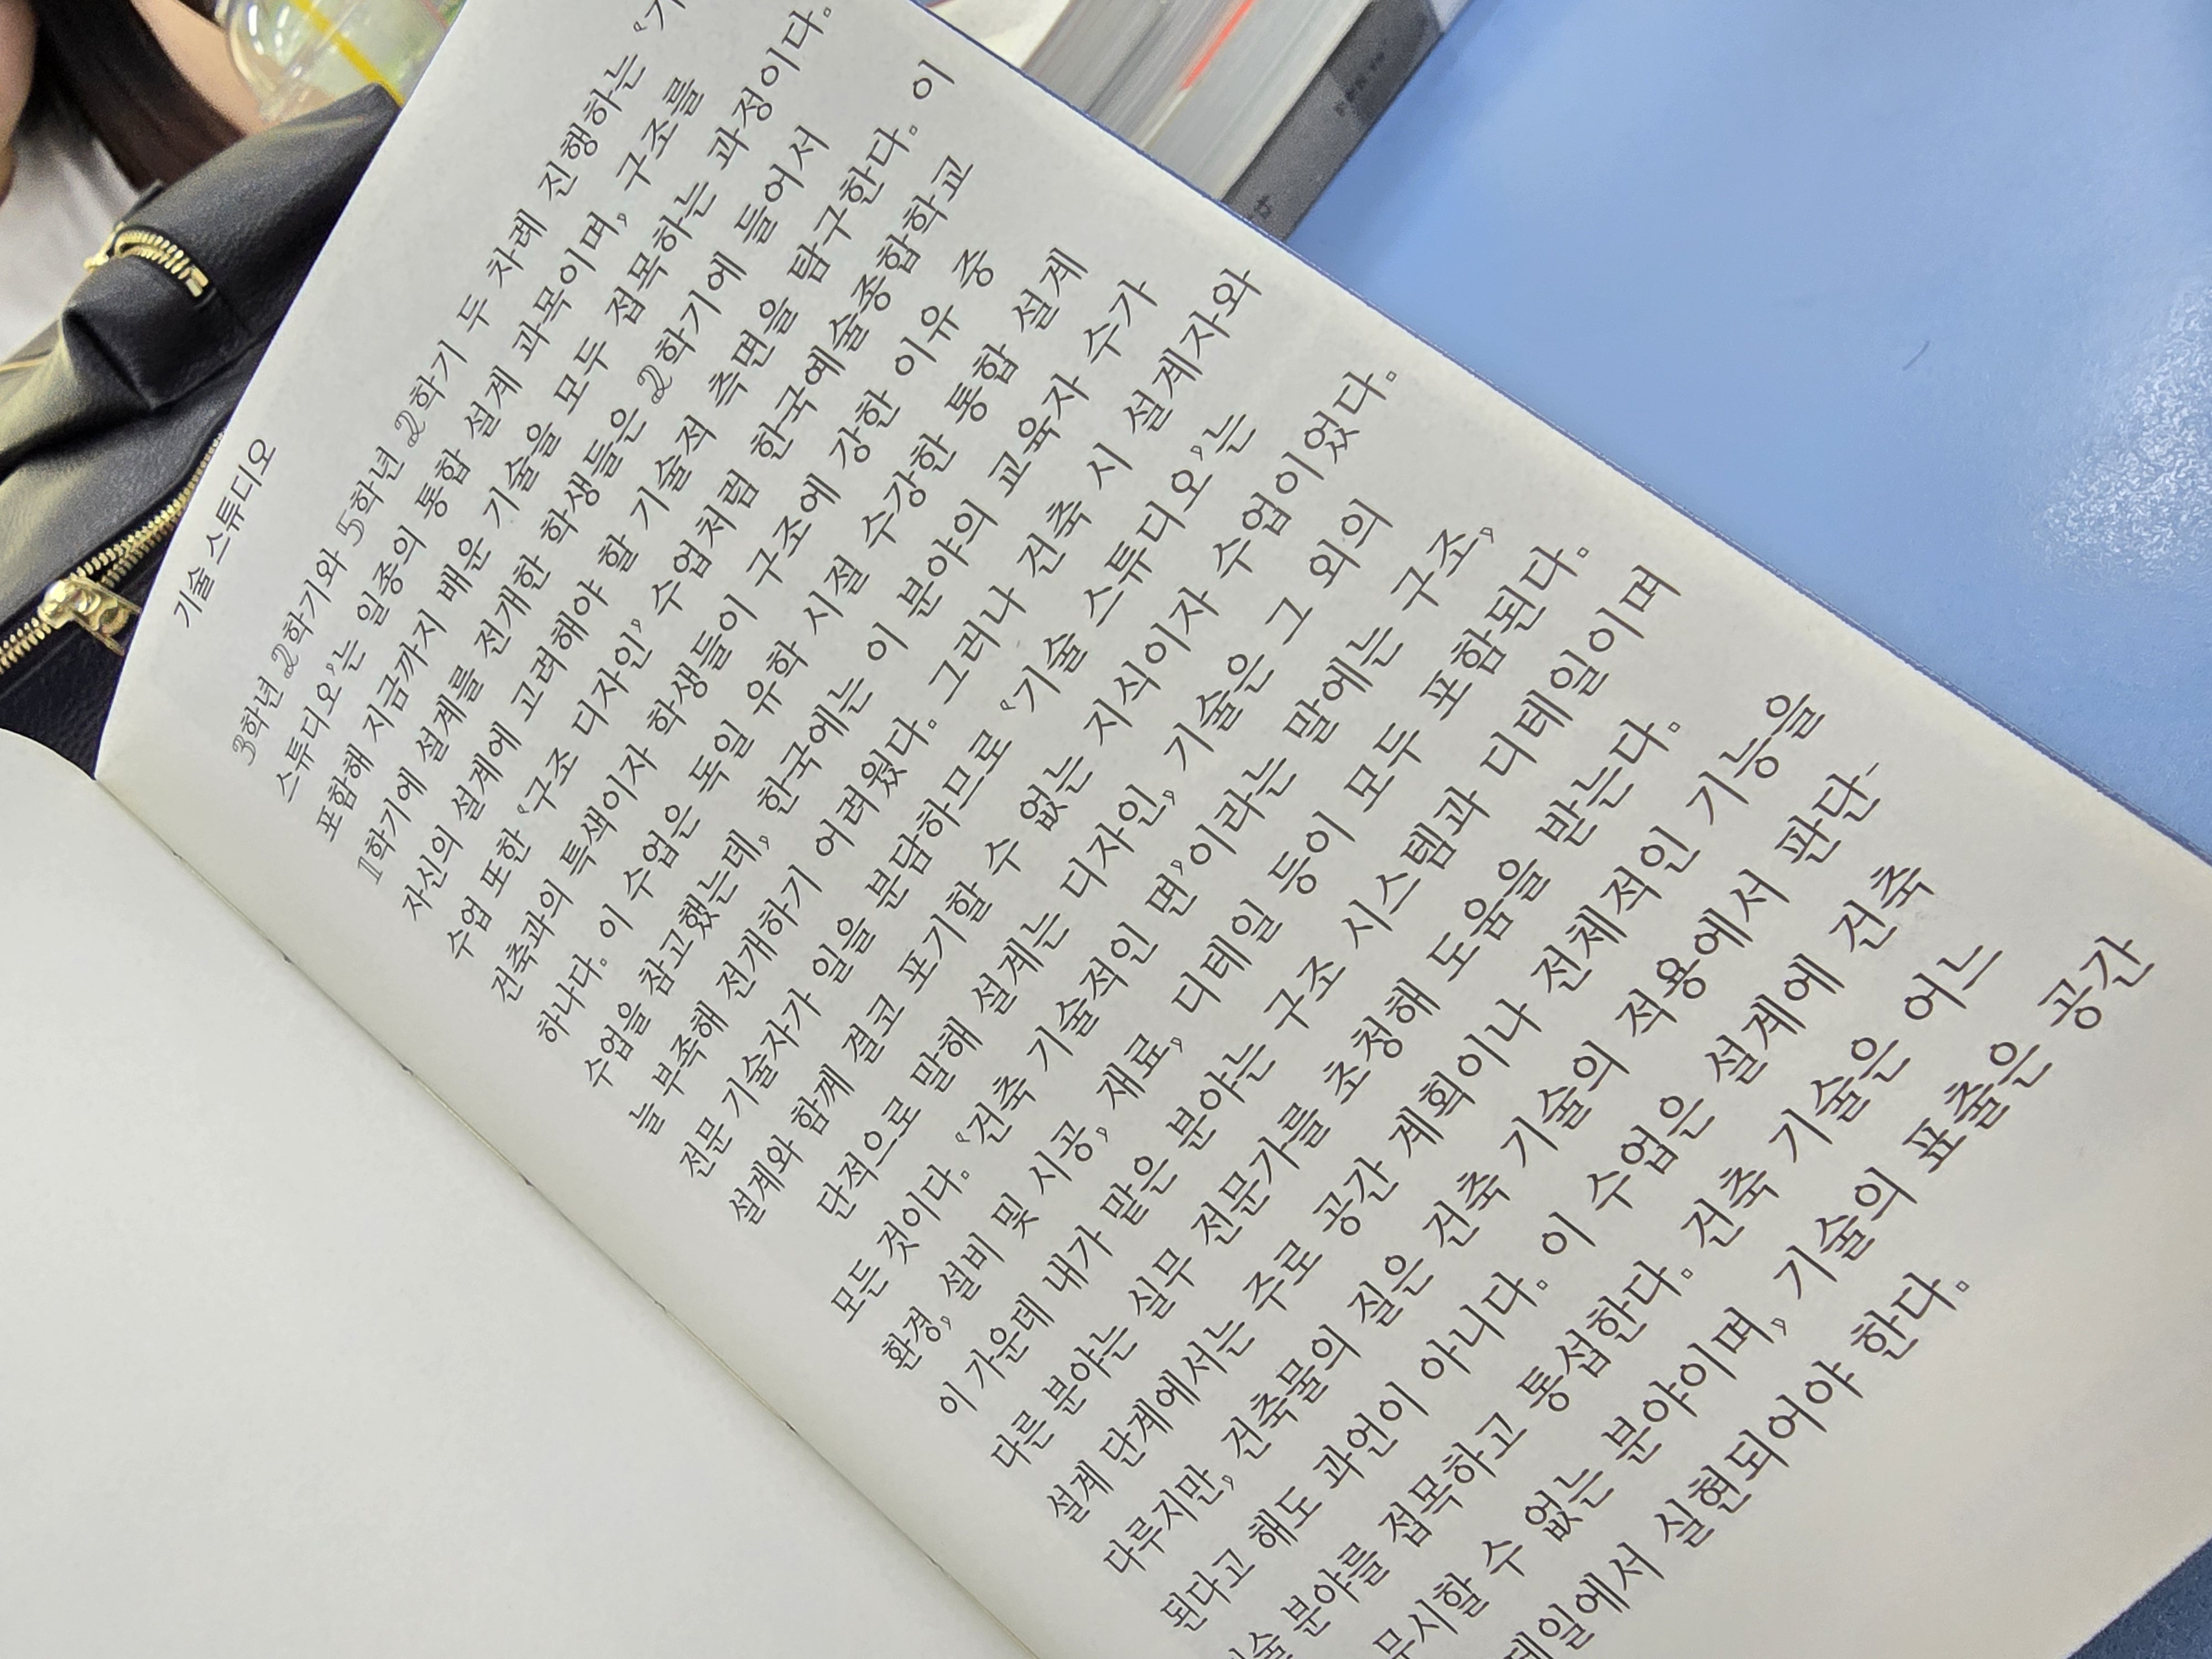 기술 스튜디오
3학년 2학기와 5학년 2학기 두 차례 진행하는 ‘기
스튜디오’는 일종의 통합 설계 과목이며, 구조를
포함해 지금까지 배운 기술을 모두 접목하는 과정이다.
1학기에 설계를 전개한 학생들은 2학기에 들어서
자신의 설계에 고려해야 할 기술적 측면을 탐구한다. 이
수업 또한 ‘구조 디자인’ 수업처럼 한국예술종합학교
건축과의 특색이자 학생들이 구조에 강한 이유 중
하나다. 이 수업은 독일 유학 시절 수강한 통합 설계
수업을 참고했는데, 한국에는 이 분야의 교육자 수가
늘 부족해 전개하기 어려웠다. 그러나 건축 시 설계자와
전문 기술자가 일을 분담하므로 ‘기술 스튜디오’는
설계와 함께 결코 포기할 수 없는 지식이자 수업이었다.
단적으로 말해 설계는 디자인, 기술은 그 외의
모든 것이다. ‘건축 기술적인 면’이라는 말에는 구조,
환경, 설비 및 시공, 재료, 디테일 등이 모두 포함된다.
이 가운데 내가 맡은 분야는 구조 시스템과 디테일이며
다른 분야는 실무 전문가를 초청해 도움을 받는다.
설계 단계에서는 주로 공간 계획이나 전체적인 기능을
다루지만, 건축물의 질은 건축 기술의 적용에서 판단-
된다고 해도 과언이 아니다. 이 수업은 설계에 건축
기술 분야를 접목하고 통섭한다. 건축 기술은 어느
무시할 수 없는 분야이며, 기술의 표출은 공간
테일에서 실현되어야 한다.